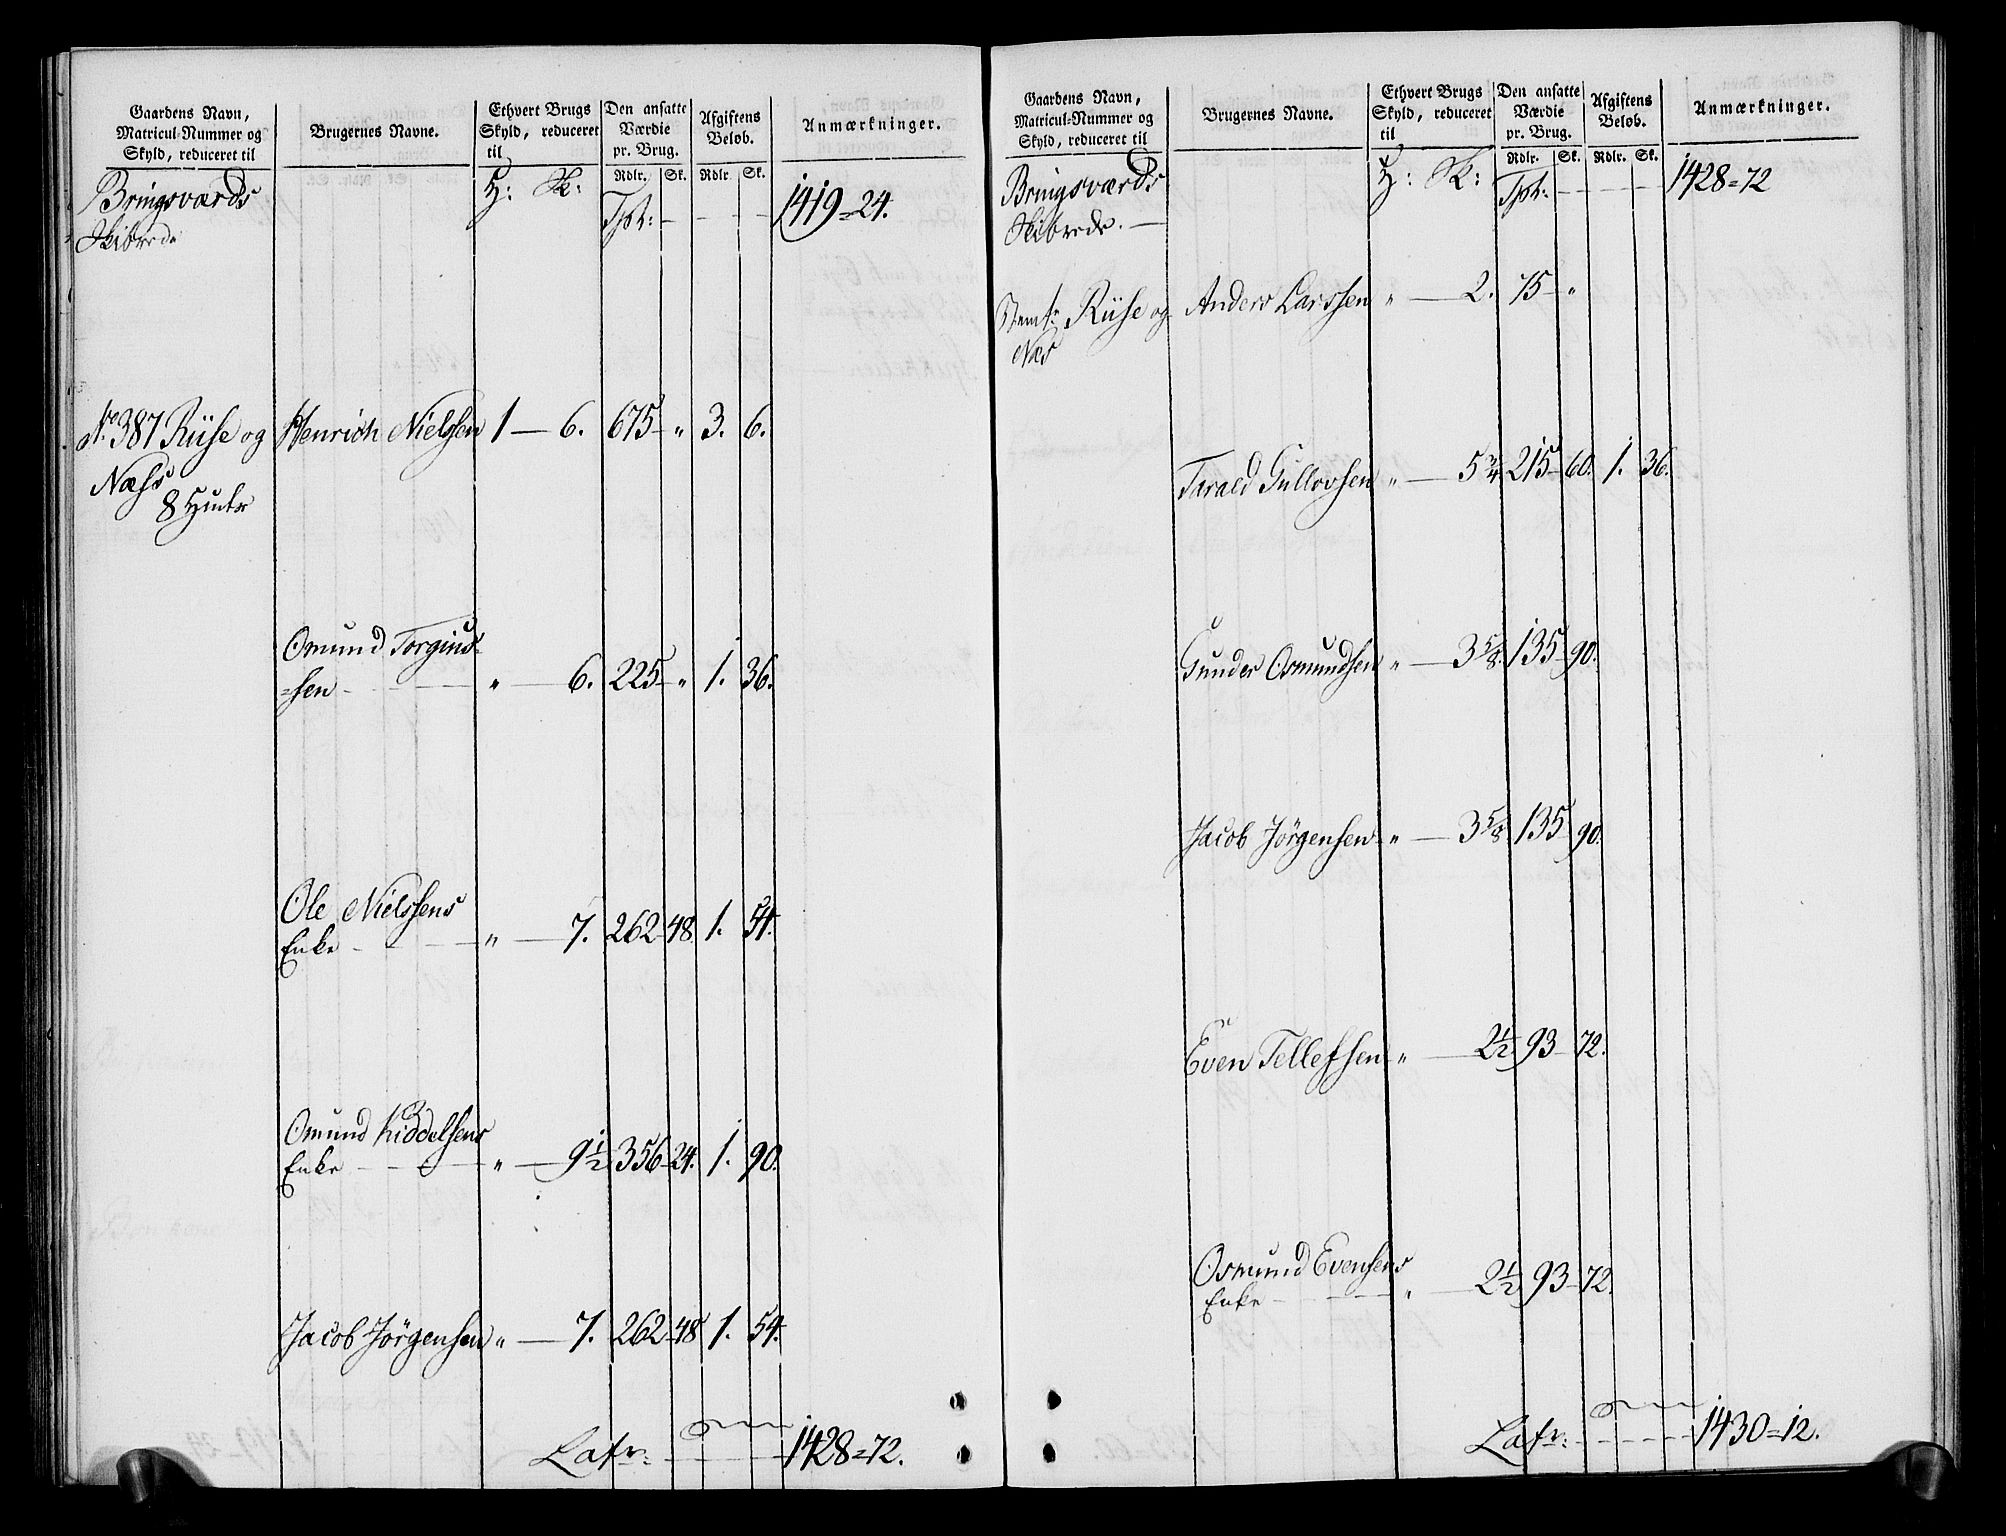 Gaardens Navn,
Matricul-Nummer og
Skyld, reduceret til
Brugernes Navne.
Ethvert Brugs
Skyld, reduceret
til
Den ansatte
Værdie
pr. Brug.
Rdlr. Sk.
Afgiftens
Beløb.
Rdlr. Sk.
Anmærkninger.
Bringsværds
Skibrede
H: Sk:
Tpt: - - - - 1419=24.
No 387 Riise og Henrich Nielssen 1 — 6. 675 - " 3. 6.
Næss
8 Huder
Osmund Torgius-
=sen - - - " — 6. 225 - " 1. 36.
Ole Nielssens
Enke - - - " — 7. 262 - 48. 1. 54.
Osmund Kiddelsens
Enke - - - " — 9 1/2 356 - 24. 1. 90.
Jacob Jörgensen " — 7. 262 - 48 1. 54.
Latr: - - - 1428=72.
Gaardens Navn,
Matricul-Nummer og
Skyld, reduceret til
Brugernes Navne.
Ethvert Brugs
Skyld, reduceret
til
Den ansatte
Værdie
pr. Brug.
Rdlr. Sk.
Afgiftens
Beløb.
Rdlr. Sk.
Anmærkninger.
Bringsværds
Skibrede. —
H: Sk:
Tpt: - - - - 1428=72
Riise og Anders Larssen " — 2. 75 - "
Næs
Tarald Gullovsen " — 5 3/4 215 - 60. 1. 36.
Gunder Osmundsen " — 3 5/8. 135 - 90.
Jacob Jörgensen " — 3 5/8 135 90.
Even Tellefsen " — 2 1/2. 93 - 72.
Osmund Evensens
Enke - - - " — 2 1/2 93 - 72.
Latr: - - - 1430=12.